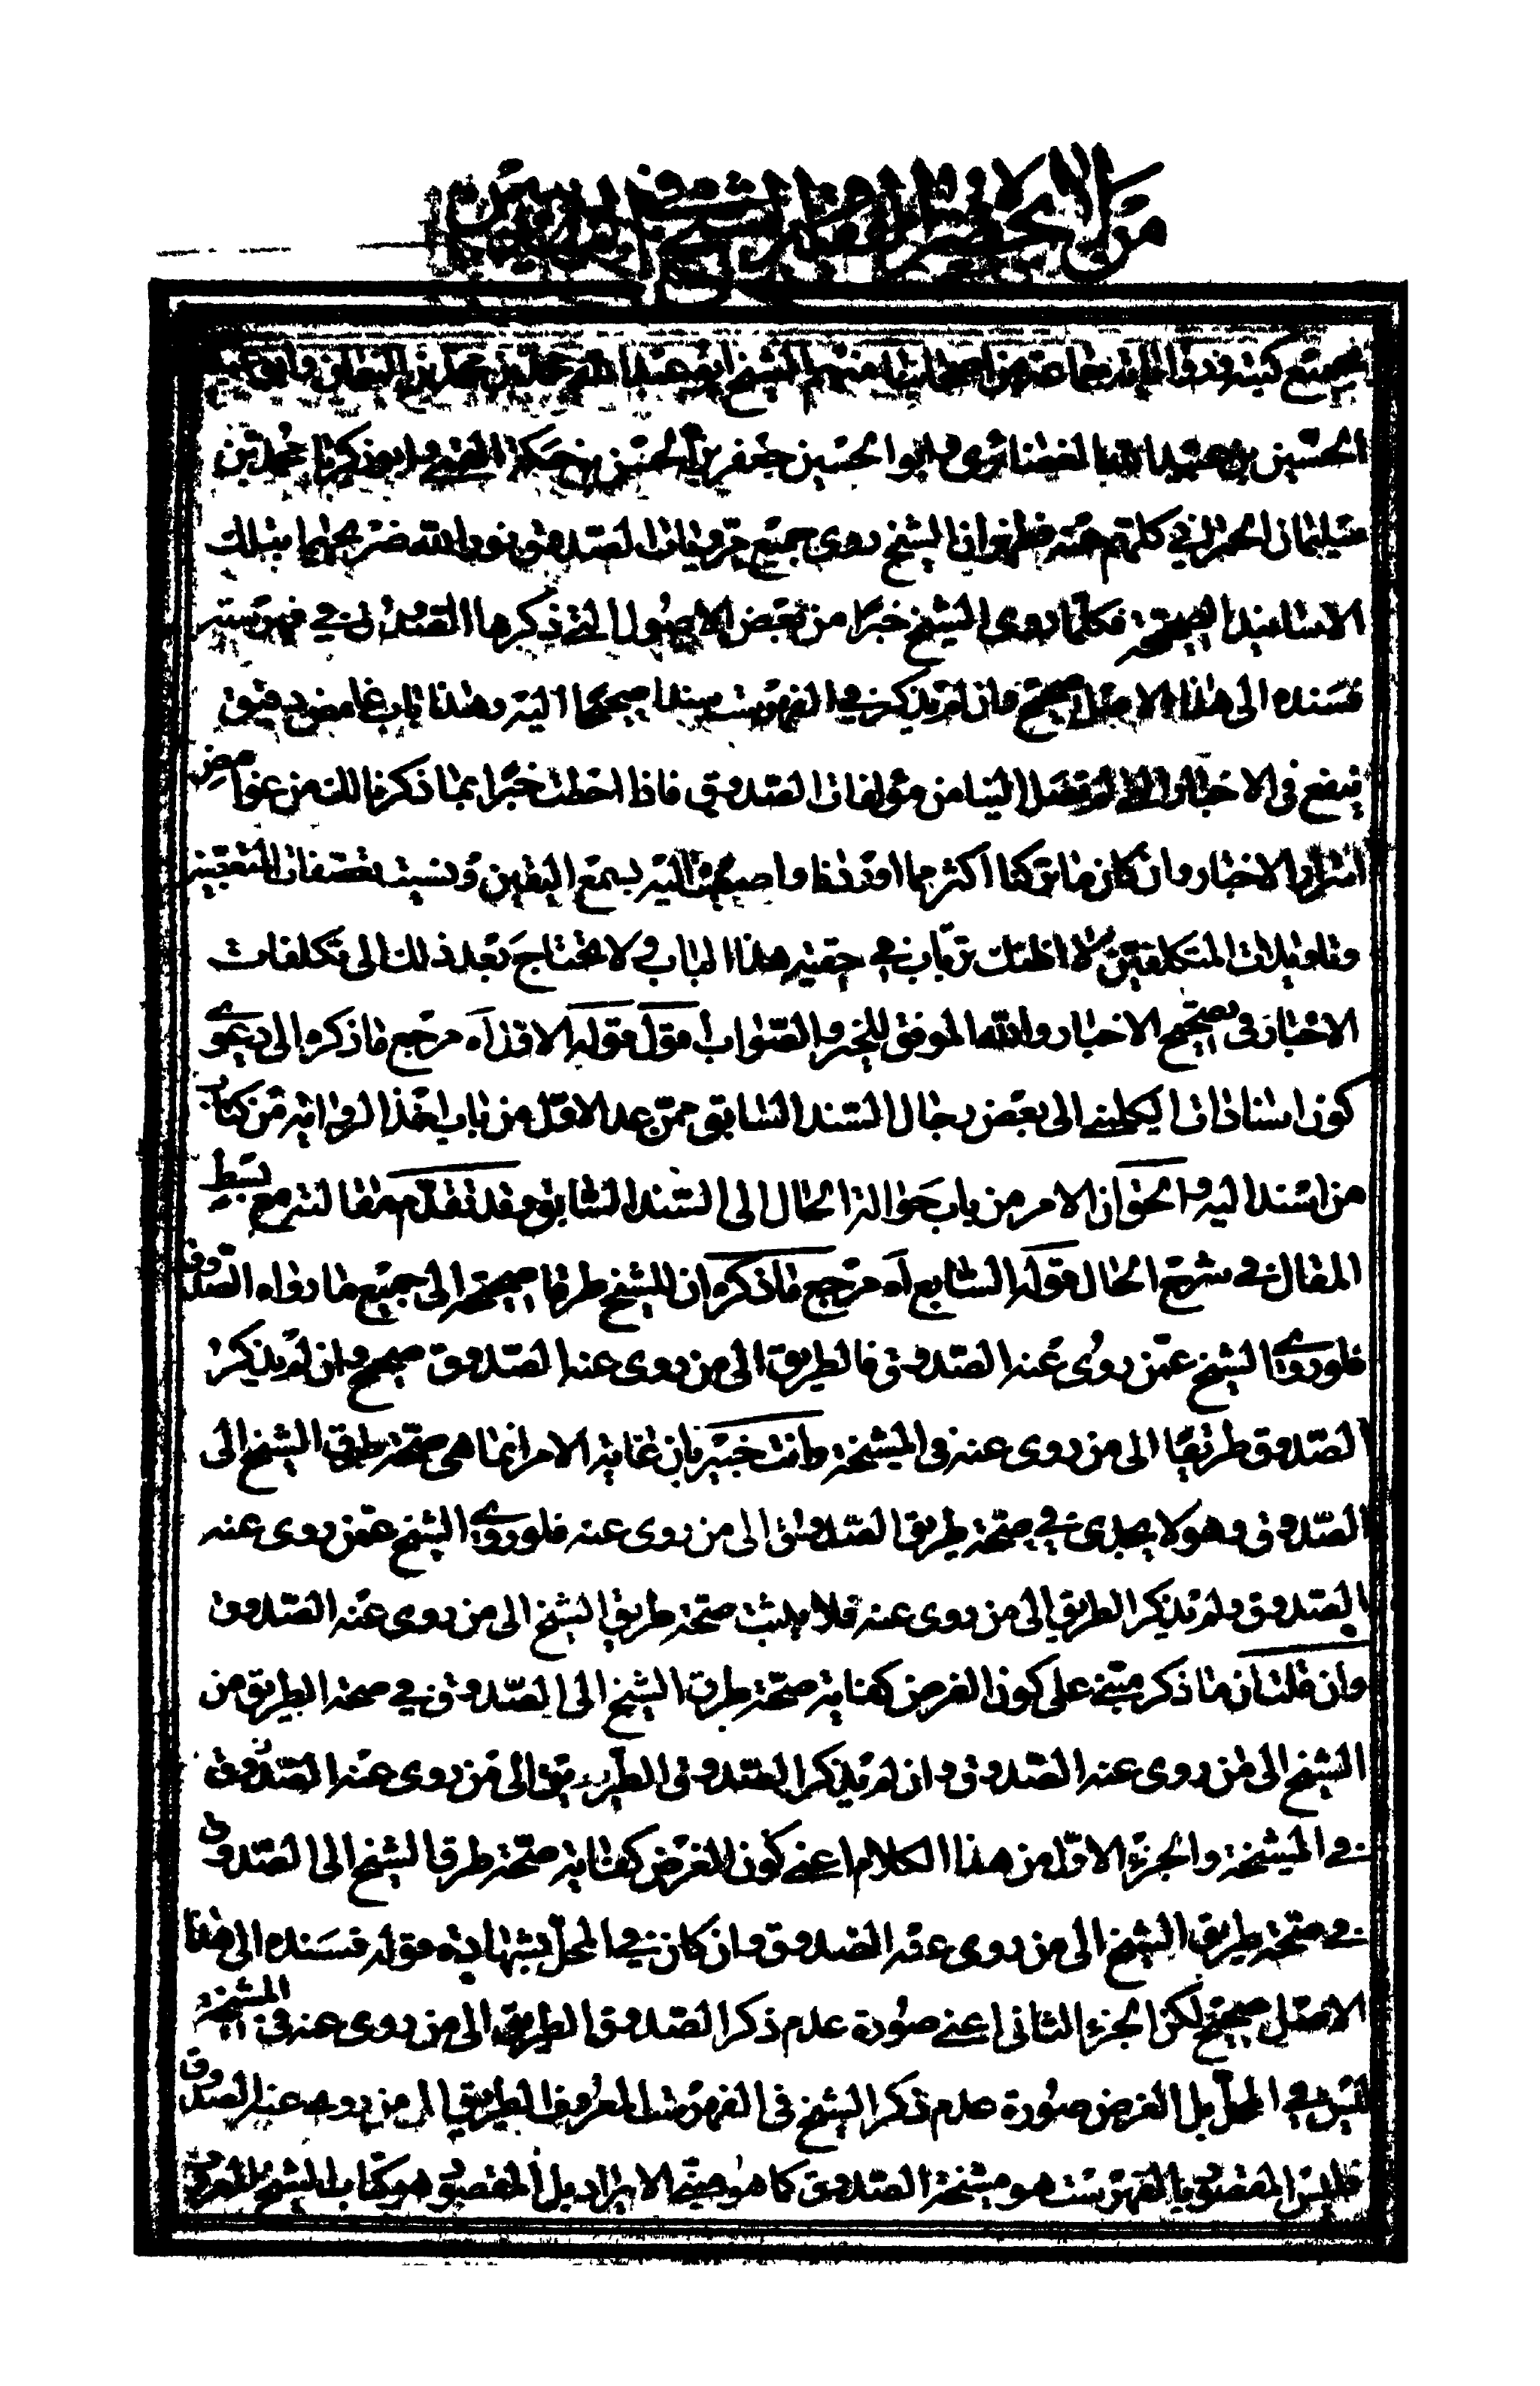 من لا يحضره الفقيه الشيخ
بجميع كتبه ورواياته جماعة من اصحابنا منهم الشيخ ابو عبد الله محمد بن محمد بن النعمان وابو عبد الله
الحسين بن عبيد الله الغضائري وابو الحسين جعفر بن الحسن بن حسكة القمي وابو زكريا محمد بن
سليمان الحمراني كلهم عنه فظهر ان الشيخ روى جميع مرويات الصدوق نور الله ضريحهما بتلك
الاسانيد الصحيحة فكلما روى الشيخ خبرا من بعض الاصول التي ذكرها الصدوق في فهرسته
فسنده الى هذا الاصل صحيح وان لم يذكر في الفهرست سندا صحيحا اليه وهذا باب غامض دقيق
ينفع في الاخبار التي لم تصل الينا من مؤلفات الصدوق فاذا احطت خبرا بما ذكرنا لك من غوامض
اسرار الاخبار وان كان ما تركنا اكثر مما اوردنا واصغيت اليه بسمع اليقين ونسيت تعسفات المتعسفين
وتاويلات المتكلفين لا اظنك ترتاب في حقية هذا الباب ولا تحتاج بعد ذلك الى تكلفات
الاخبار في تصحيح الاخبار والله الموفق للخير والصواب اقول قوله الاول آه مرجع ما ذكره الى دعوى
كون اسنادات الكليني الى بعض رجال السند السابق ممن عد الاول من باب اخذ الرواية من كتاب
من اسند اليه والحق ان الامر من باب حوالة الحال الى السند السابق وقد تقدم مقالته مع بسط
المقال في شرح الحال قوله السابع آه مرجع ما ذكره ان للشيخ طرقا صحيحة الى جميع ما رواه الصدوق
فلو روى الشيخ عمن روى عنه الصدوق فالطريق الى من روى عنه الصدوق صحيح وان لم يذكر
الصدوق طريقا الى من روى عنه في المشيخة وانت خبير بان غاية الامر انما هي صحة طرق الشيخ الى
الصدوق وهو لا يجدي في صحة طريق الصدوق الى من روى عنه فلو روى الشيخ عمن روى عنه
الصدوق ولم يذكر الطريق الى من روى عنه فلا يثبت صحة طريق الشيخ الى من روى عنه الصدوق
وان قلت ان ما ذكر مبني على كون الغرض كفاية صحة طرق الشيخ الى الصدوق في صحة الطريق من
الشيخ الى من روى عنه الصدوق وان لم يذكر الصدوق الطريق الى من روى عنه الصدوق
في المشيخة والجزء الاول من هذا الكلام اعني كون الغرض كفاية صحة طرق الشيخ الى الصدوق
في صحة طريق الشيخ الى من روى عنه الصدوق وان كان في المحل بشهادة قوله فسنده الى هذا
الاصل صحيح لكن الجزء الثاني اعني صورة عدم ذكر الصدوق الطريق الى من روى عنه في المشيخة
ليس في المحل بل الغرض صورة عدم ذكر الشيخ في الفهرست المعروف الطريق الى من روى عنه الصدوق
فليس المقصود بالفهرست هو مشيخة الصدوق كما هو مبنى الايراد بل المقصود هو كتاب الشيخ المعروف